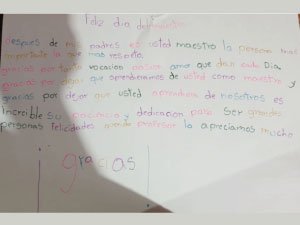 Feliz dia del maestro
despues de mis padres es usted maestro la persona mas
importante la que mas respeto.
gracias por tanto vocacion pasion amor que dan cada Dia
gracias por dejar que aprendieramos de usted como maestro y
gracias por dejar que usted aprendiera de nosotros es
increible su paciencia y dedicacion para ser grandes
personas felicidades profesor la apreciamos mucho
¡gracias!